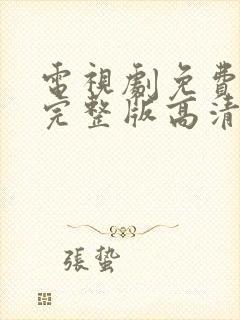 電視劇免費
完整版高清
張蟄